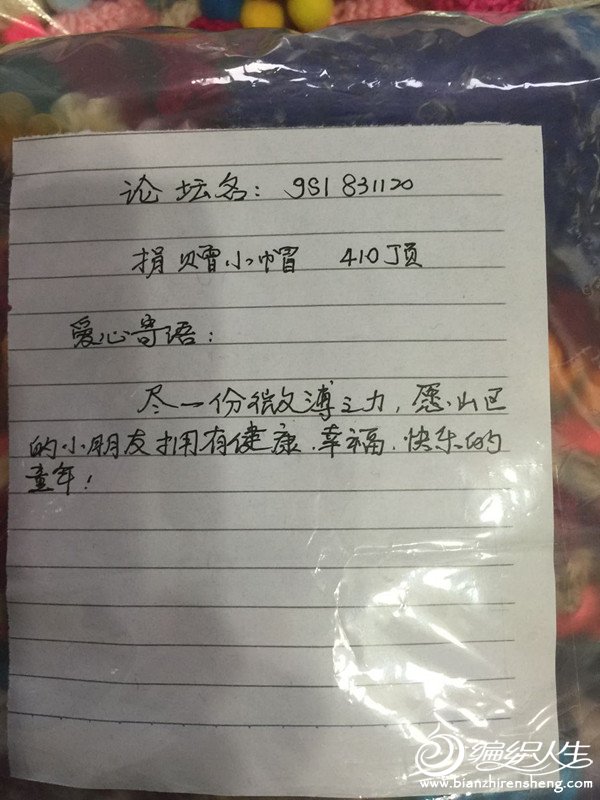 论坛名：gsl831120
捐赠小帽 410顶
爱心寄语：
尽一份微薄之力，愿山区
的小朋友拥有健康、幸福、快乐的
童年！
编织人生
www.bianzhirensheng.com